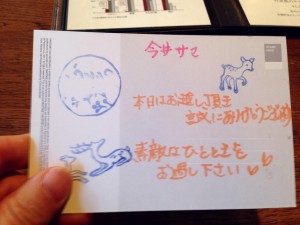 今井サマ
本日はお越し頂き
誠にありがとうございます
素敵なひとときを
お過し下さい